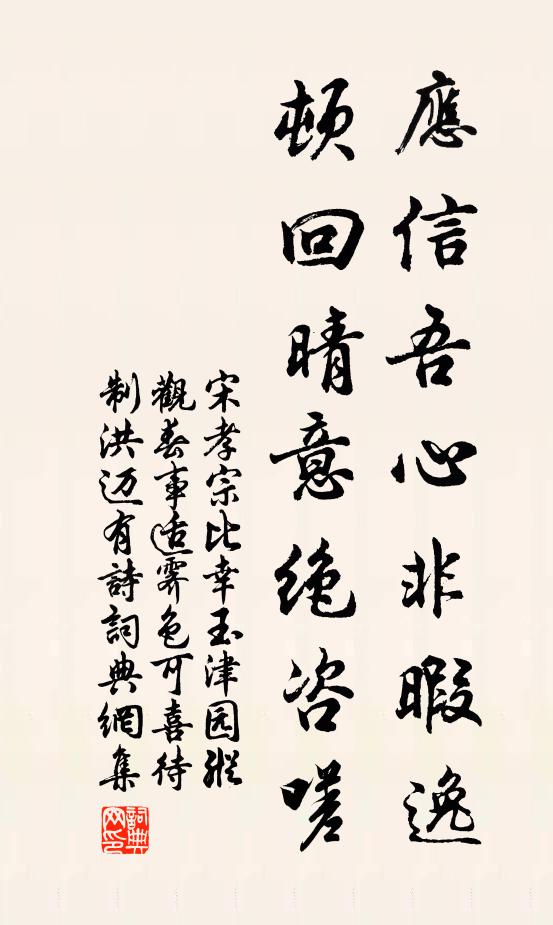 應信吾心非暇逸
頓回晴意絕咨嗟
宋孝宗比幸玉津园縱
觀春事适霽色可喜待
制洪迈有詩詞典網集
詞典网印